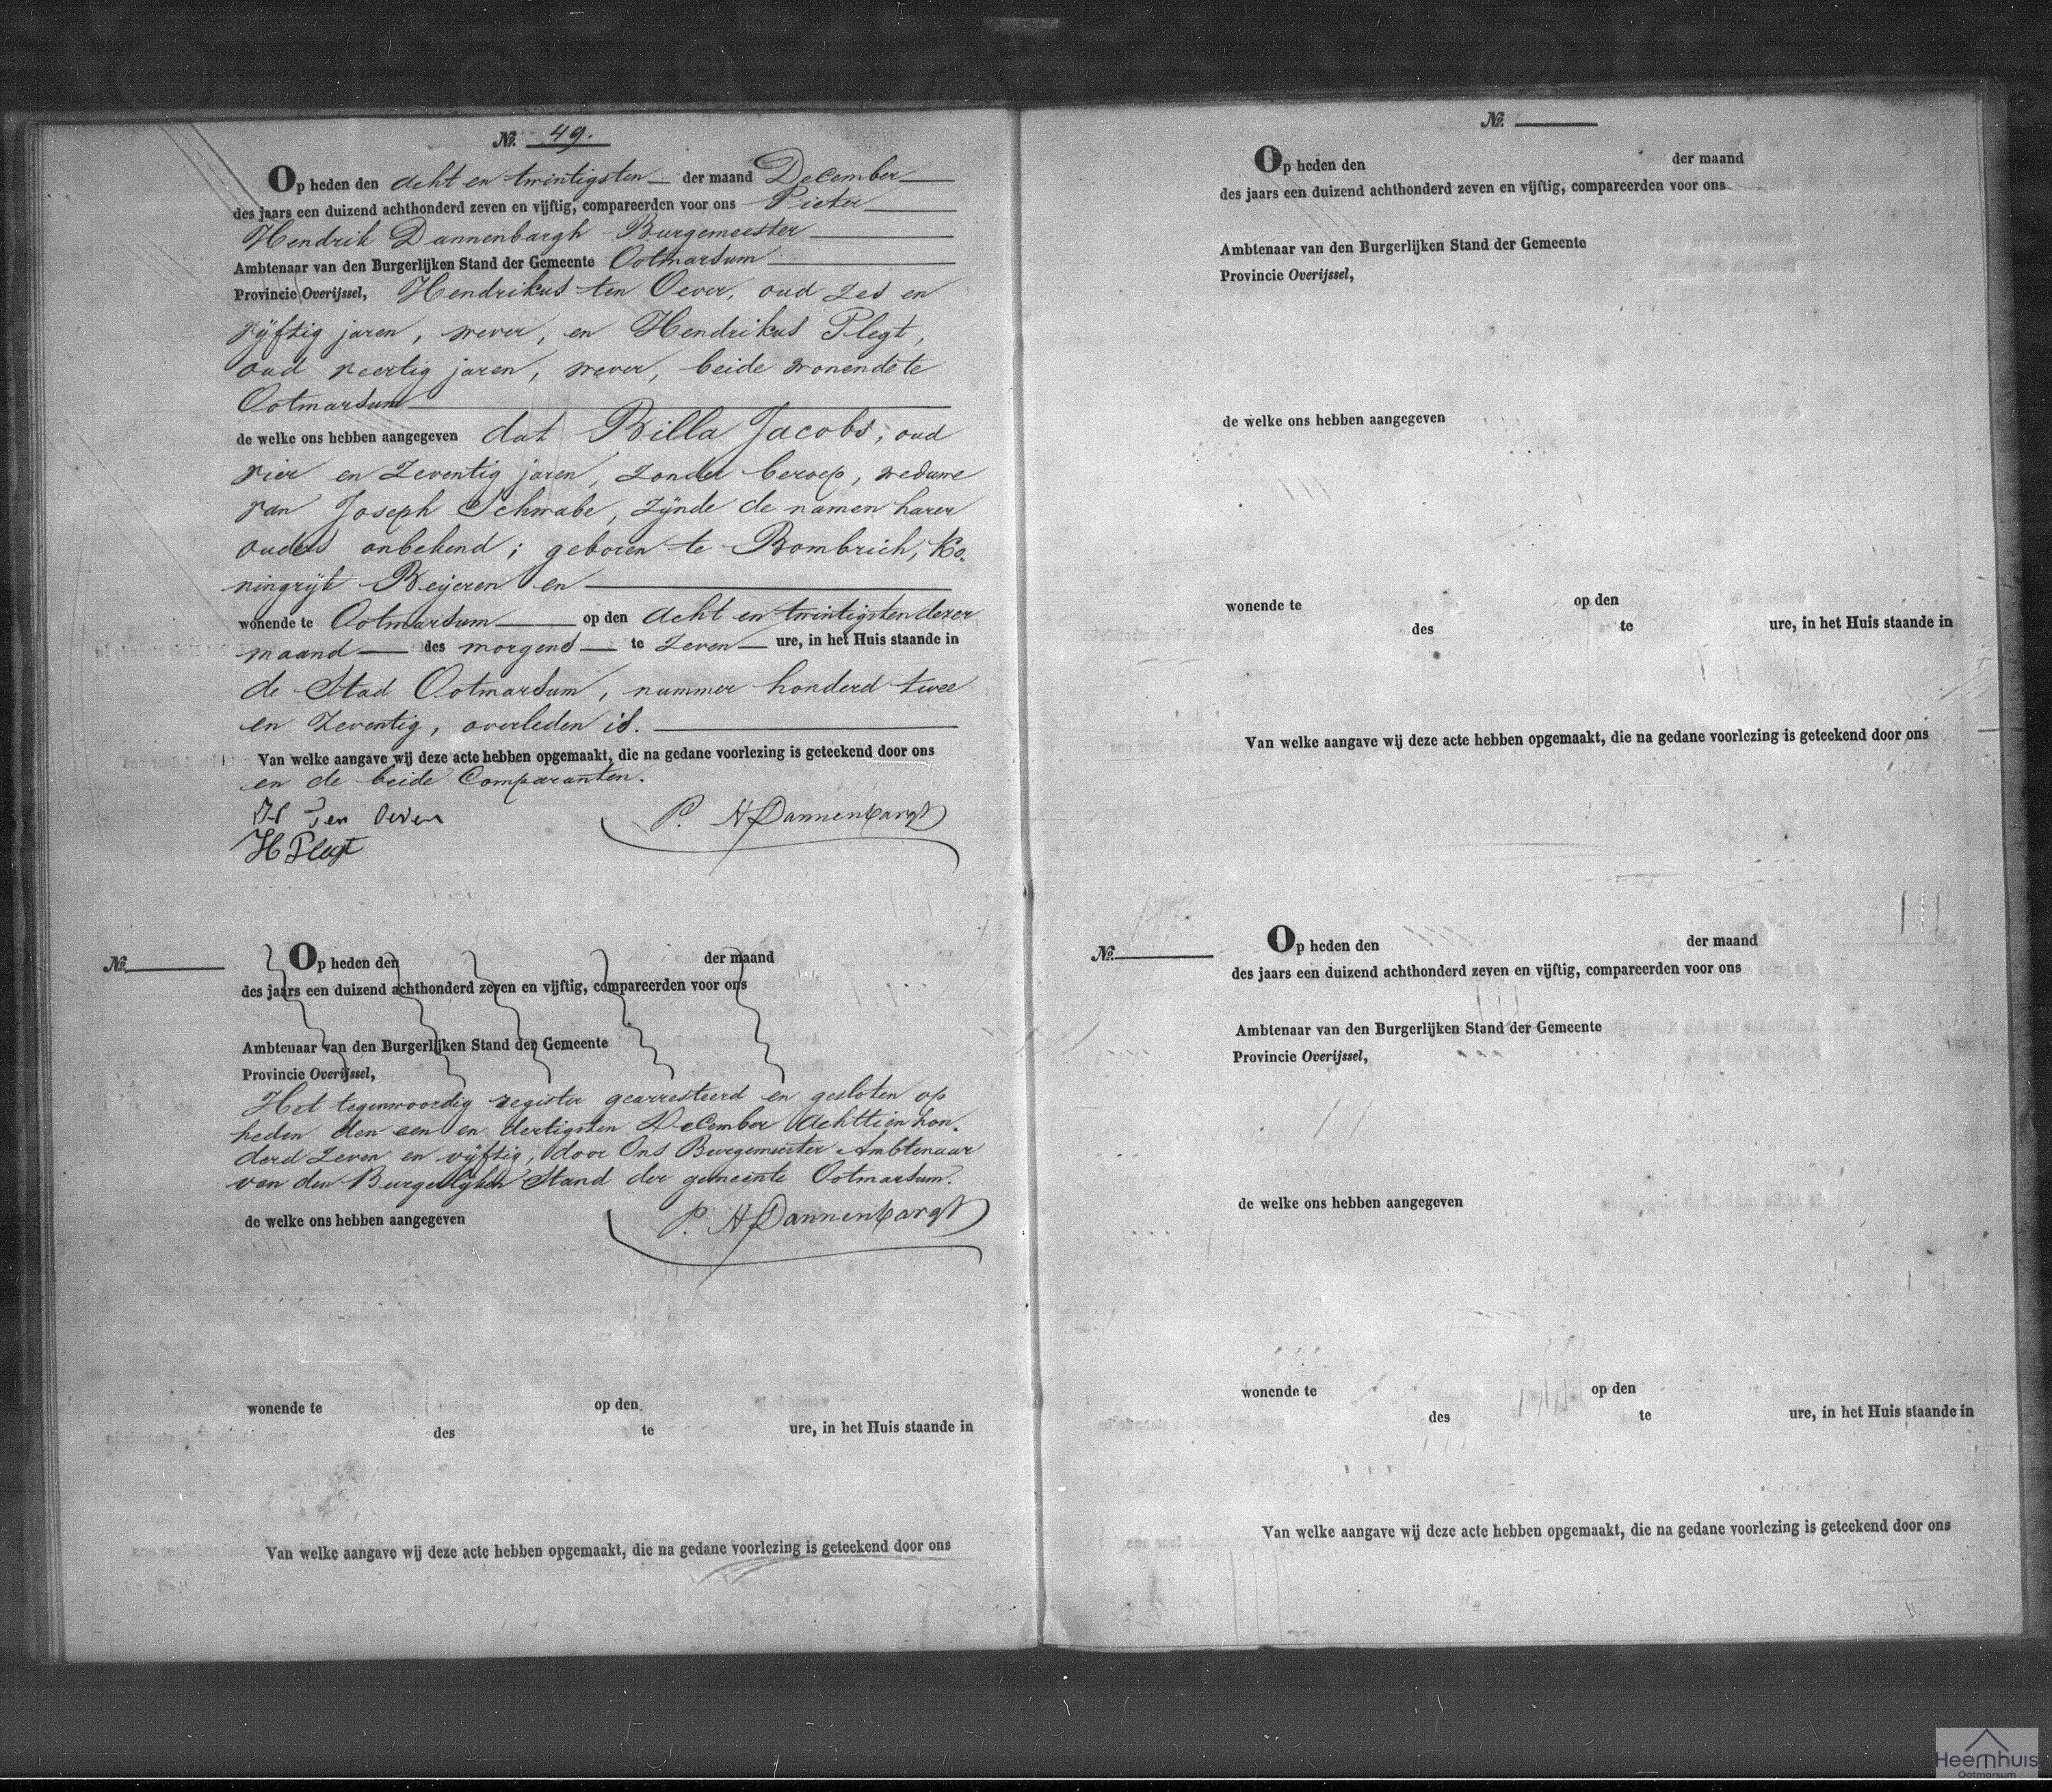 №. 49.
Op heden den acht en twintigsten der maand December
des jaars een duizend achthonderd zeven en vijftig, compareerden voor ons Pieter
Hendrik Dannenbargh Burgemeester
Ambtenaar van den Burgerlijken Stand der Gemeente Ootmarsum
Provincie Overijssel, Hendrikus ten Oever, oud zes en
vijftig jaren, wever, en Hendrikus Plegt,
oud veertig jaren, wever, beide wonende te
Ootmarsum
de welke ons hebben aangegeven dat Billa Jacobs, oud
vier en zeventig jaren, zonder beroep, weduwe
van Joseph Schwabe, zijnde de namen harer
ouders onbekend; geboren te Bombrich, Ko-
ningrijk Beijeren en
wonende te Ootmarsum op den acht en twintigsten dezer
maand des morgens te zeven ure, in het Huis staande in
de Stad Ootmarsum, nummer honderd twee
en zeventig, overleden is.
Van welke aangave wij deze acte hebben opgemaakt, die na gedane voorlezing is geteekend door ons
en de beide Comparanten.
H Ten Oever
P. H Dannenbargh
H Plegt
№.
Op heden den der maand
des jaars een duizend achthonderd zeven en vijftig, compareerden voor ons
Ambtenaar van den Burgerlijken Stand der Gemeente
Provincie Overijssel,
Het tegenwoordig register gearresteerd en gesloten op
heden den een en dertigsten December achttien hon-
derd zeven en vijftig, door Ons Burgemeester Ambtenaar
van den Burgerlijken Stand der gemeente Ootmarsum.
de welke ons hebben aangegeven
P. H Dannenbargh
wonende te op den
des te ure, in het Huis staande in
Van welke aangave wij deze acte hebben opgemaakt, die na gedane voorlezing is geteekend door ons
№.
Op heden den der maand
des jaars een duizend achthonderd zeven en vijftig, compareerden voor ons
Ambtenaar van den Burgerlijken Stand der Gemeente
Provincie Overijssel,
de welke ons hebben aangegeven
wonende te op den
des te ure, in het Huis staande in
Van welke aangave wij deze acte hebben opgemaakt, die na gedane voorlezing is geteekend door ons
№.
Op heden den der maand
des jaars een duizend achthonderd zeven en vijftig, compareerden voor ons
Ambtenaar van den Burgerlijken Stand der Gemeente
Provincie Overijssel,
de welke ons hebben aangegeven
wonende te op den
des te ure, in het Huis staande in
Van welke aangave wij deze acte hebben opgemaakt, die na gedane voorlezing is geteekend door ons
Heemhuis
Ootmarsum